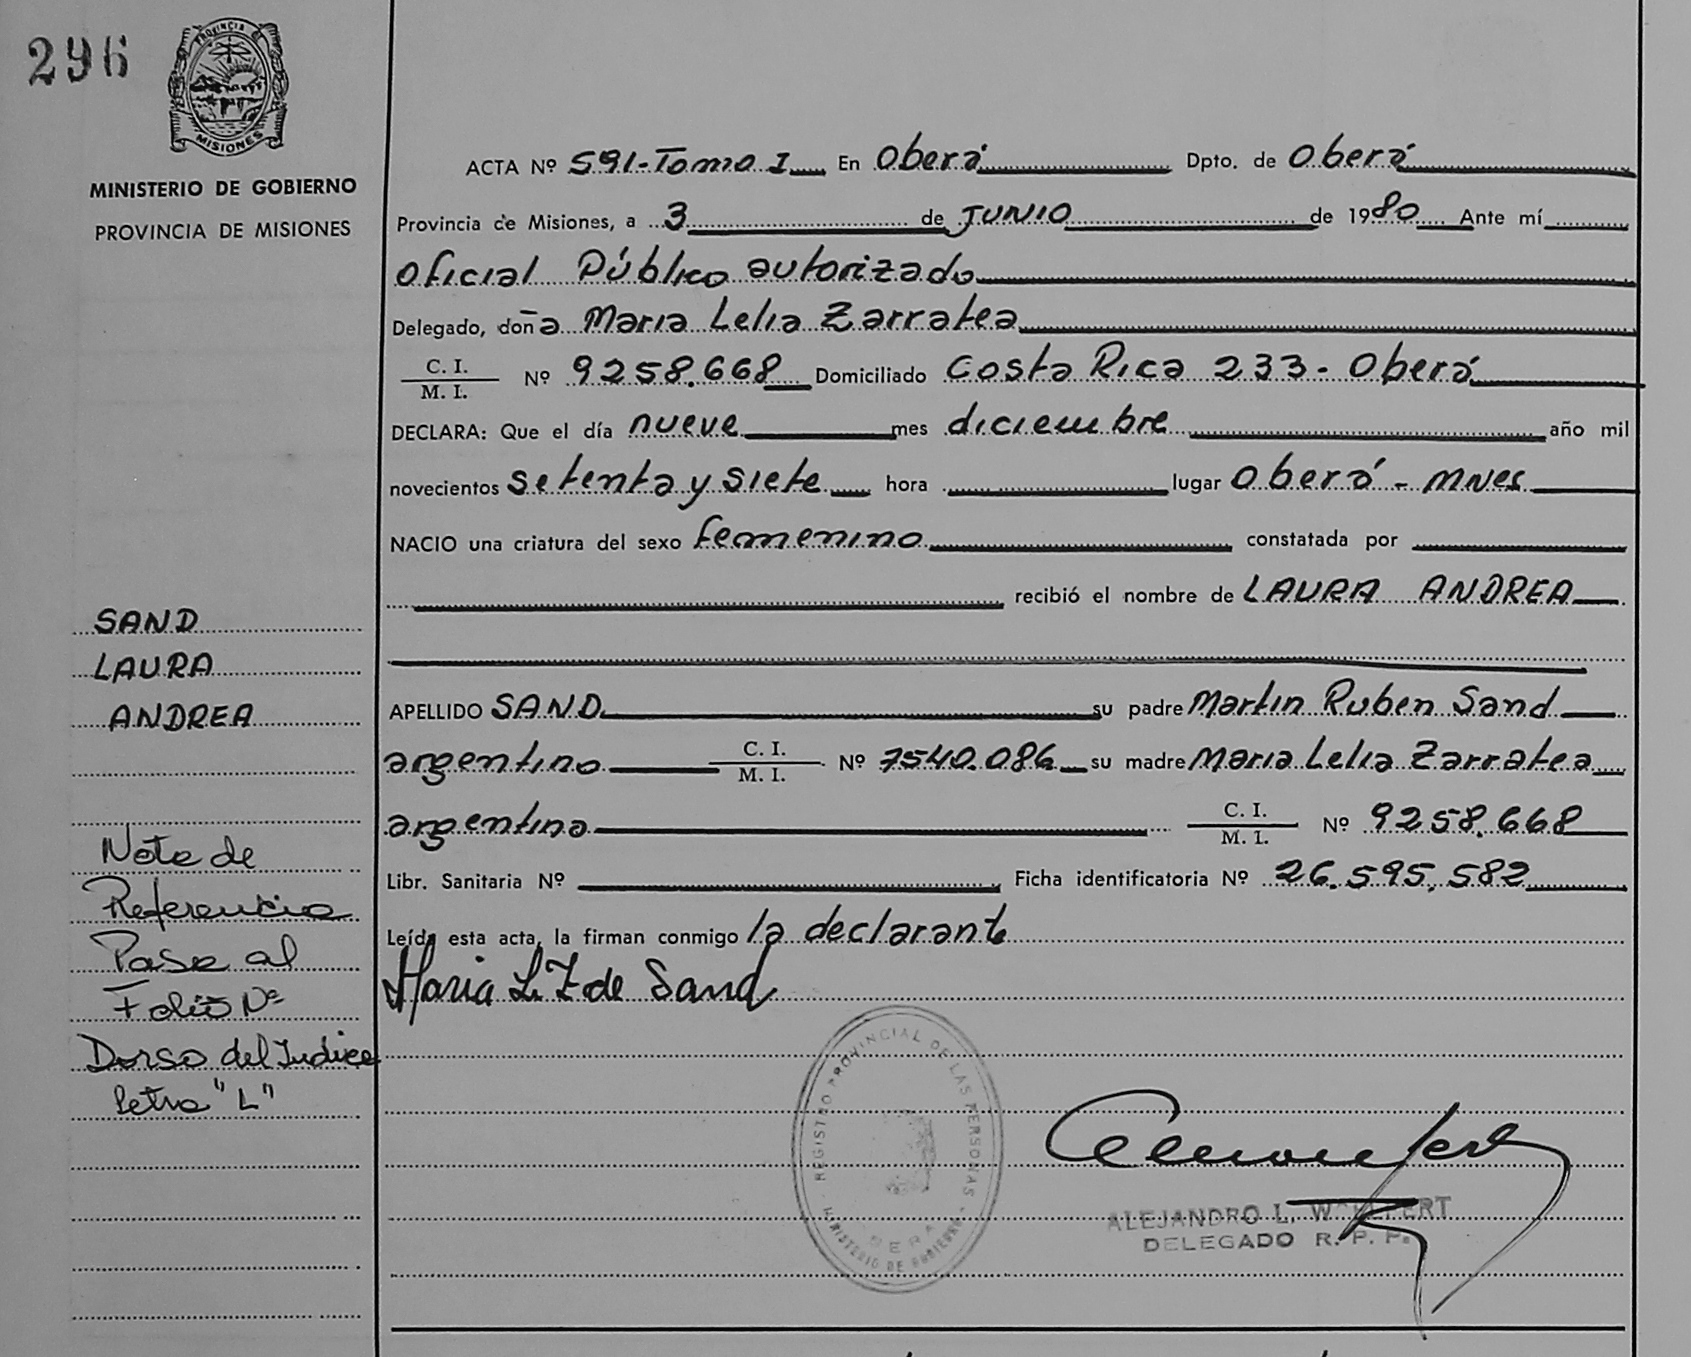 296
PROVINCIA DE
MISIONES
MINISTERIO DE GOBIERNO
PROVINCIA DE MISIONES
ACTA Nº 591-Tomo I En Oberá Dpto. de Oberá
Provincia de Misiones, a 3 de JUNIO de 1980 Ante mí
Oficial Público autorizado
Delegado, doña Maria Lelia Zarratea
C. I.
M. I. Nº 9258.668 Domiciliado Costa Rica 233 - Oberá
DECLARA: Que el día nueve mes diciembre año mil
novecientos setenta y siete hora lugar Oberá - Mnes
NACIO una criatura del sexo femenino constatada por
recibió el nombre de LAURA ANDREA
APELLIDO SAND su padre Martin Ruben Sand
argentino C. I.
M. I. Nº 7540.086 su madre Maria Lelia Zarratea
argentina C. I.
M. I. Nº 9258.668
Libr. Sanitaria Nº Ficha identificatoria Nº 26.595.582
Leída esta acta, la firman conmigo la declarante
Maria L. Z de Sand
SAND
LAURA
ANDREA
Nota de
Referencia
Pase al
Folio Nº
Dorso del Indice
letra "L"
REGISTRO PROVINCIAL DE LAS PERSONAS
MINISTERIO DE GOBIERNO
ALEJANDRO L.
DELEGADO R. P. P.